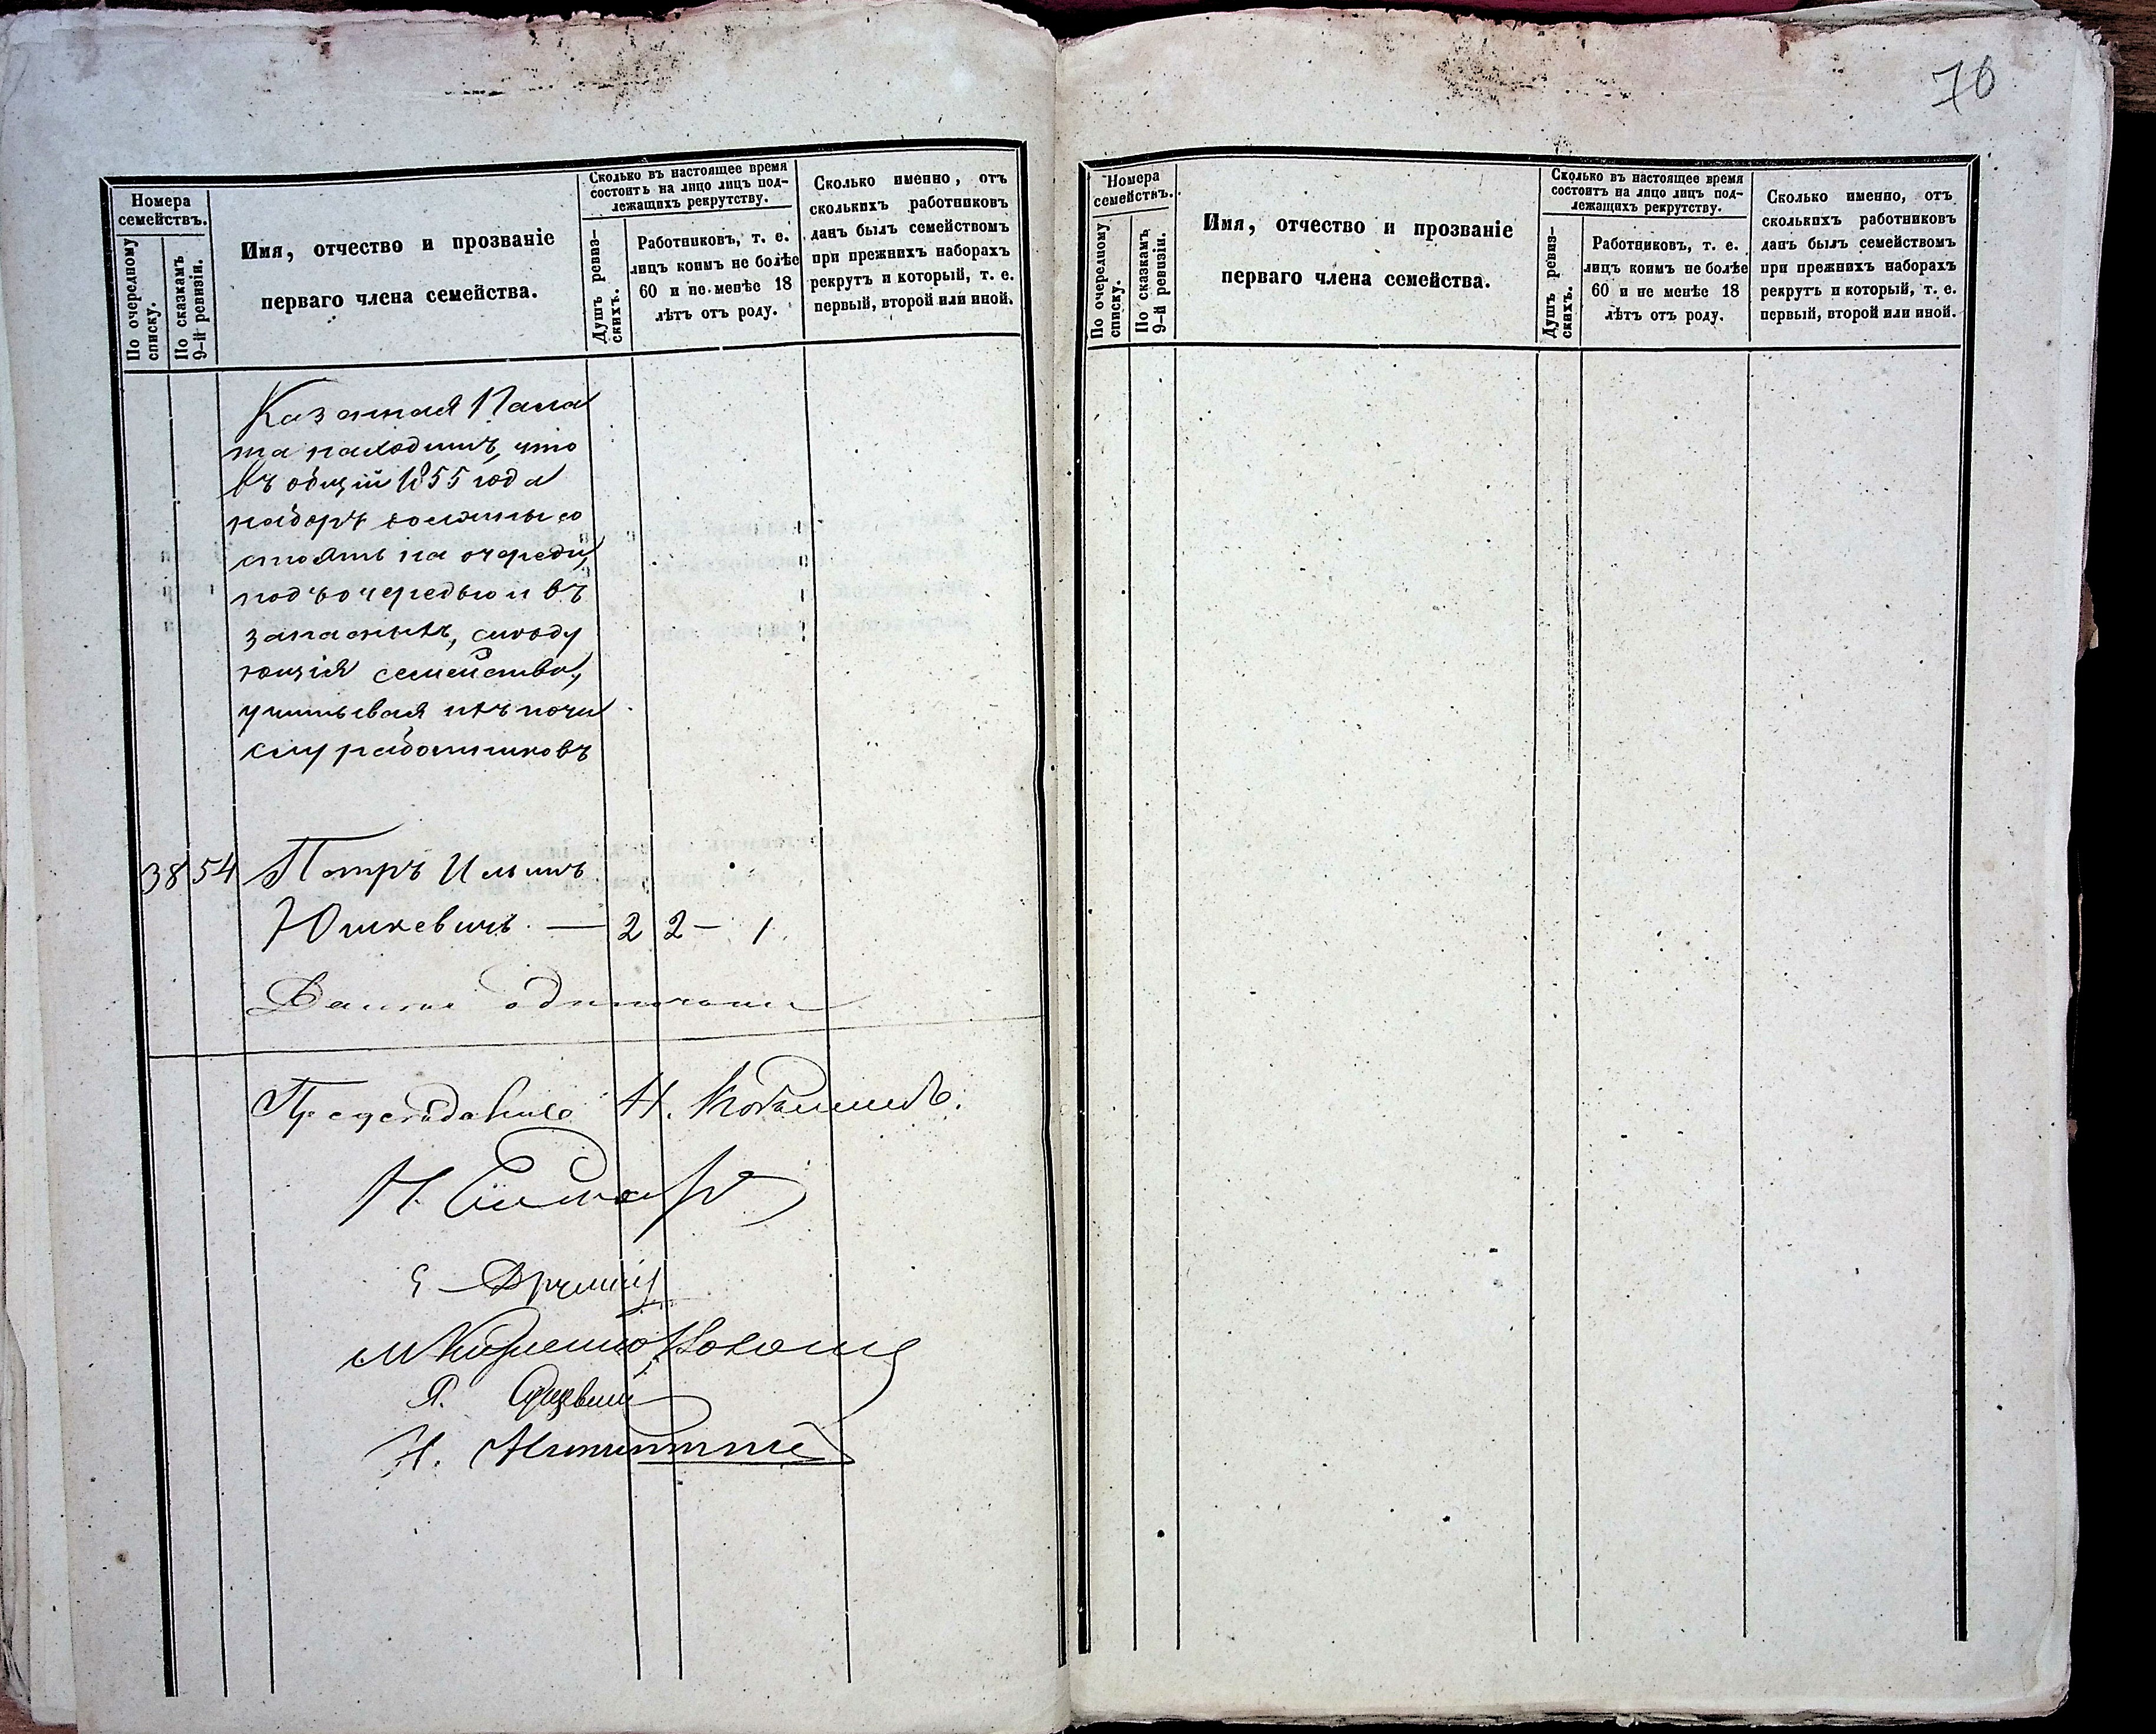 Номера
семействъ.
По очередному
списку.
По сказкамъ
9-й ревизіи.
Имя, отчество и прозваніе
перваго члена семейства.
Сколько въ настоящее время
состоитъ на лицо лицъ под-
лежащихъ рекрутству.
Душъ ревиз-
скихъ.
Работниковъ, т. е.
лицъ коимъ не болѣе
60 и не менѣе 18
лѣтъ отъ роду.
Сколько именно, отъ
сколькихъ работниковъ
данъ былъ семействомъ
при прежнихъ наборахъ
рекрутъ и который, т. е.
первый, второй или иной.
Казенная Пала
та находитъ, что
въ общій 1855 года
наборъ должны со
стоять на очереди,
подъ очередью и въ
запасныхъ, слѣду
ющія семейства,
учитывая ихъ по чи
слу работниковъ
38 54 Петръ Ильинъ
Юшкевичъ. — 2 2 — 1
Н.
Н.
М
Я.
Н.
76
Номера
семействъ.
По очередному
списку.
По сказкамъ
9-й ревизіи.
Имя, отчество и прозваніе
перваго члена семейства.
Сколько въ настоящее время
состоитъ на лицо лицъ под-
лежащихъ рекрутству.
Душъ ревиз-
скихъ.
Работниковъ, т. е.
лицъ коимъ не болѣе
60 и не менѣе 18
лѣтъ отъ роду.
Сколько именно, отъ
сколькихъ работниковъ
данъ былъ семействомъ
при прежнихъ наборахъ
рекрутъ и который, т. е.
первый, второй или иной.